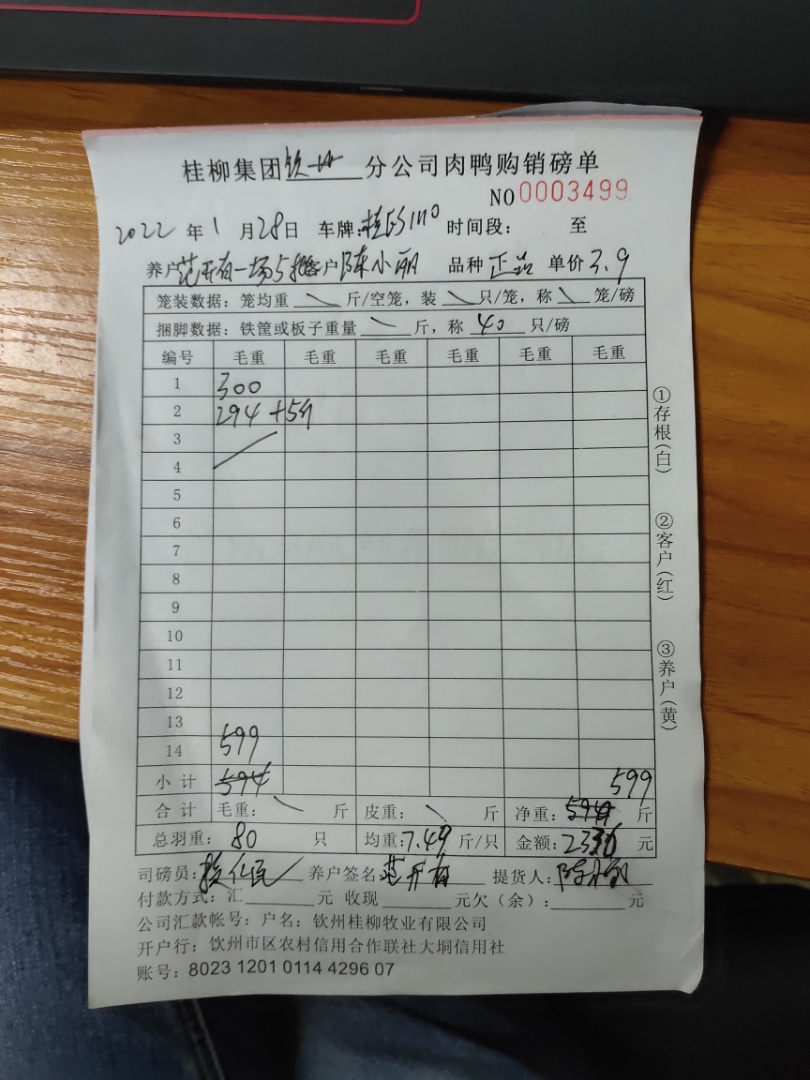 桂柳集团钦州分公司肉鸭购销磅单
NO 0003499
2022年1月28日 车牌: 时间段: 至
养户范开有一场5批客户陈小丽 品种正品 单价3.9
笼装数据:笼均重\斤/空笼,装\只/笼,称\笼/磅
捆脚数据:铁筐或板子重量\斤,称40只/磅
编号 毛重 毛重 毛重 毛重 毛重 毛重
1 300
2 294 +5斤
3
4
5
6
7
8
9
10
11
12
13
14 599
小计 594 599
合计 毛重:\斤 皮重:\斤 净重:599斤
总羽重:80只 均重:7.49斤/只 金额:2336元
司磅员: 养户签名:范开有 提货人:
付款方式:汇 元 收现 元欠(余): 元
公司汇款帐号:户名:钦州桂柳牧业有限公司
开户行:钦州市区农村信用合作联社大垌信用社
账号:8023 1201 0114 4296 07
①存根(白)
②客户(红)
③养户(黄)